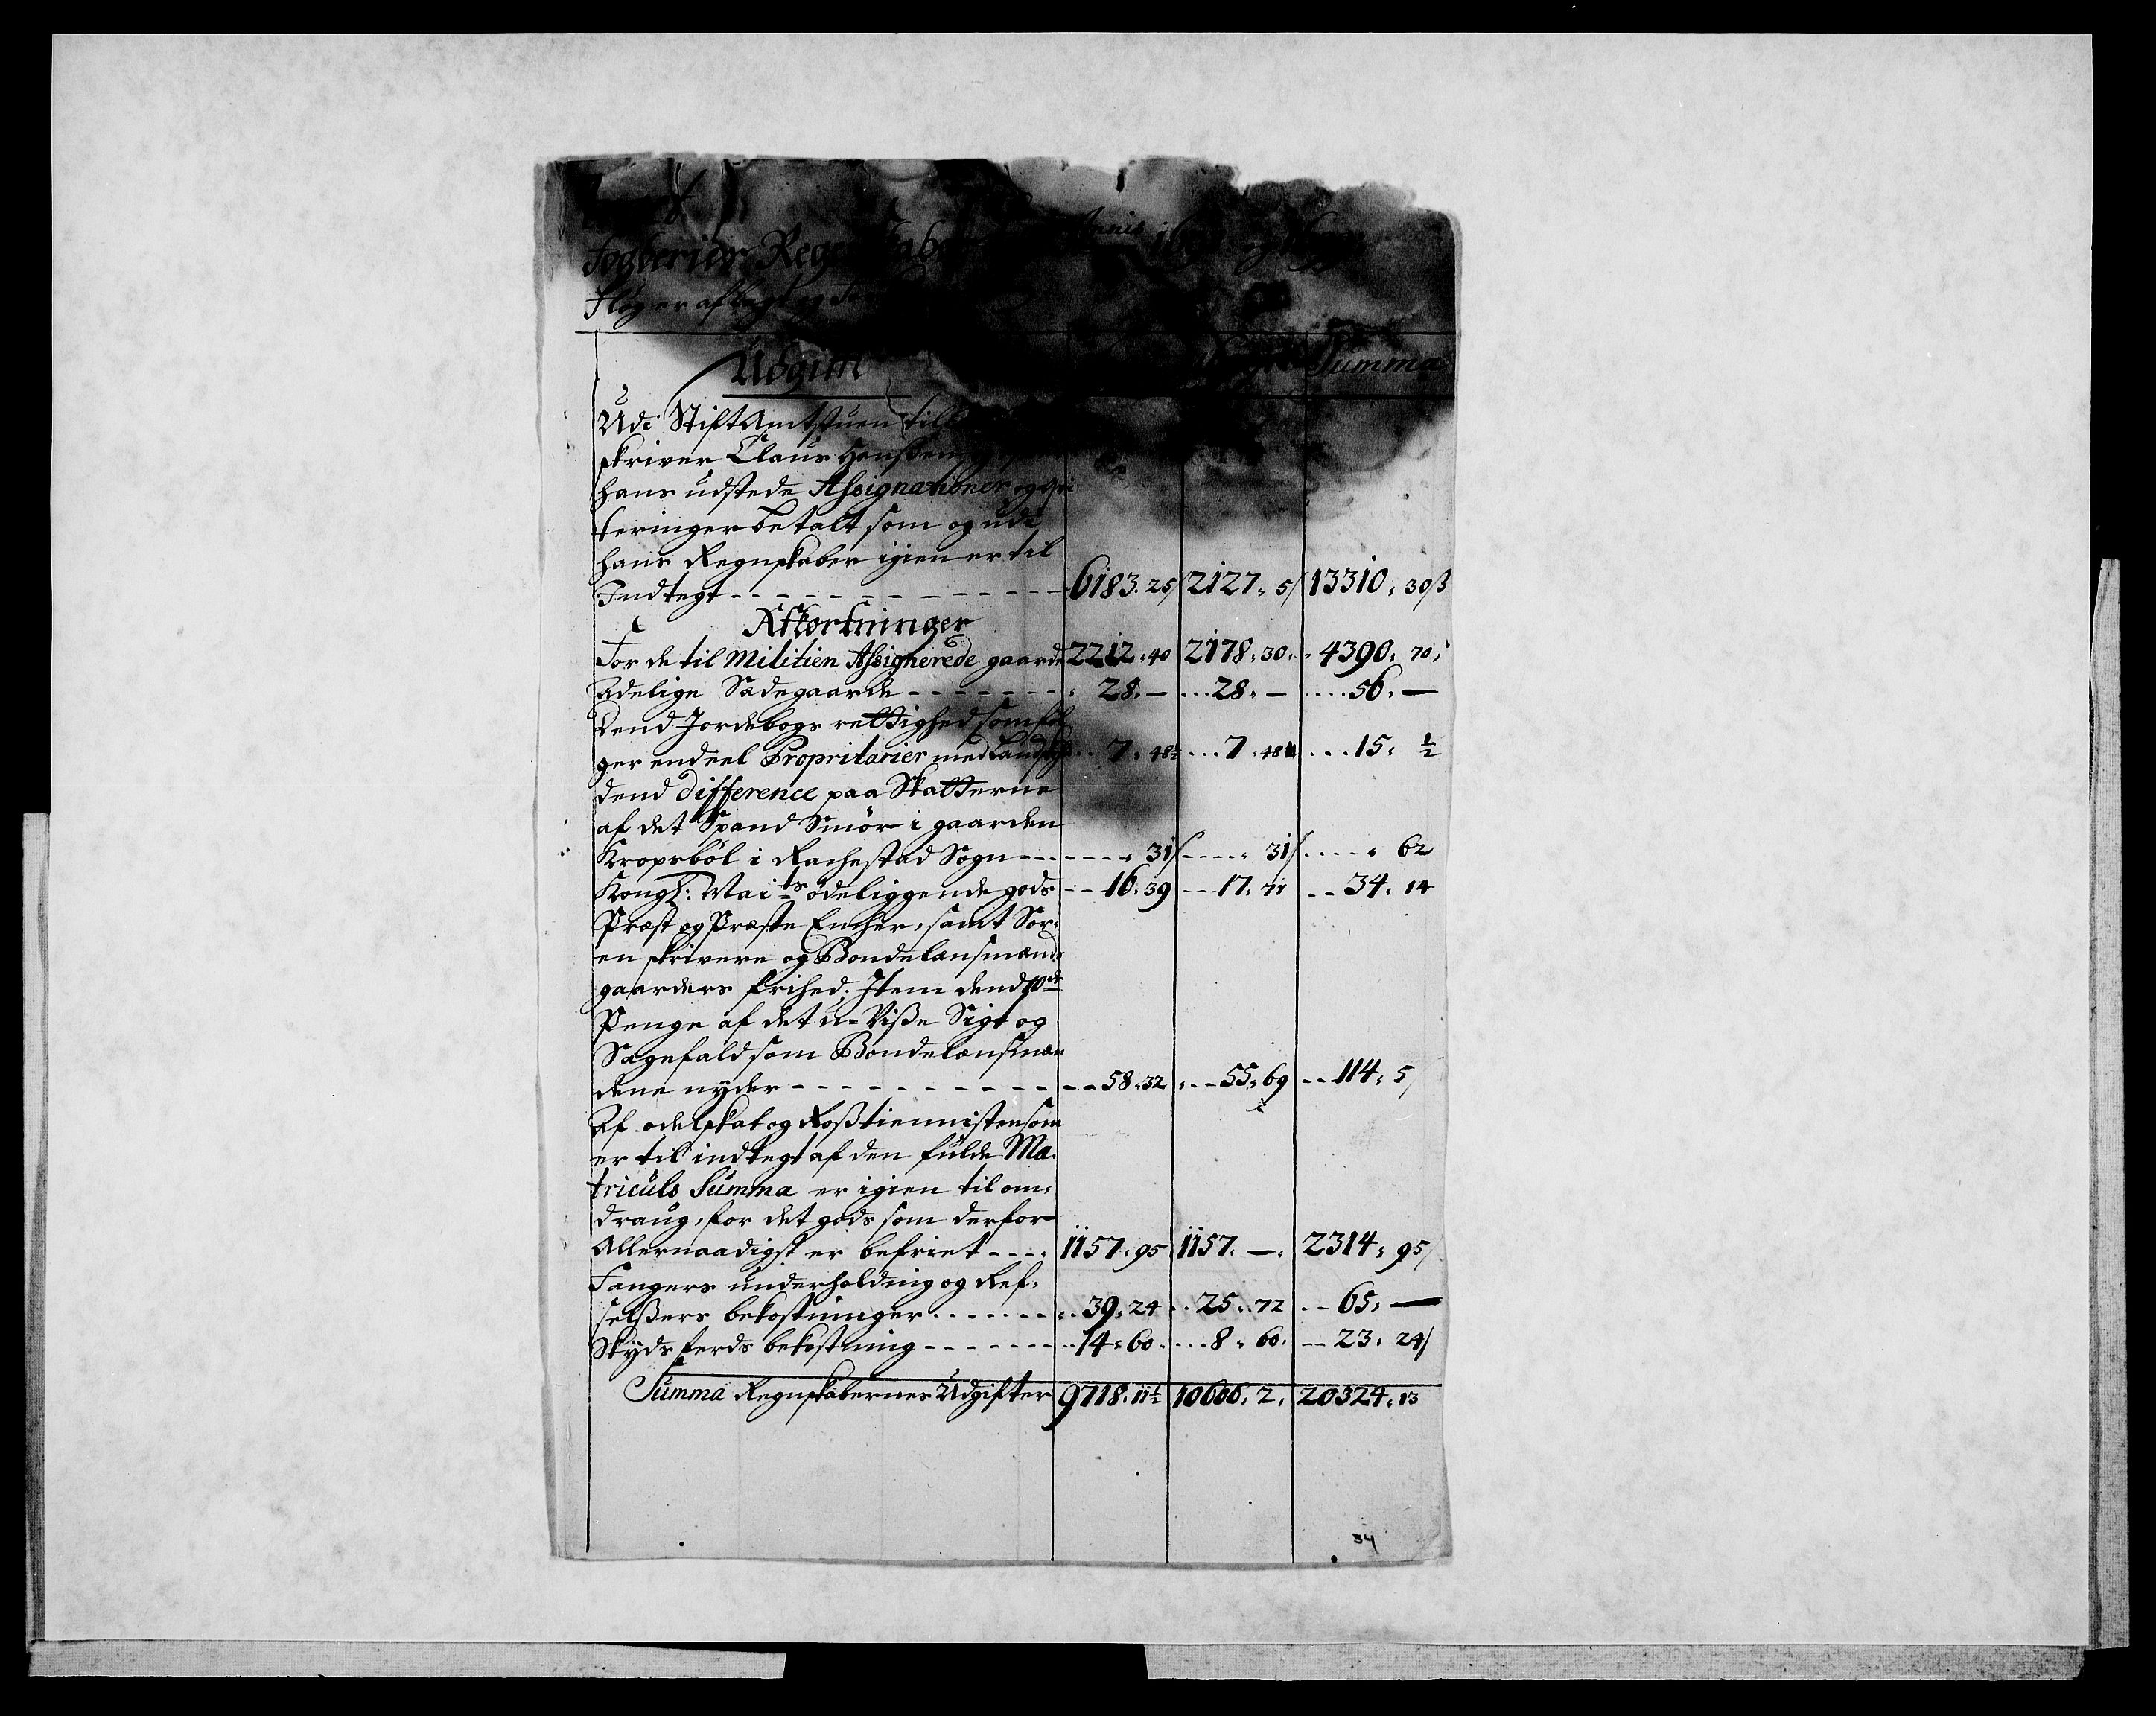 Fogderiers Regenskaber Annis
Udgift Summa
Udi Stiftamtstuen till
skriver Claus Hanssen
hans udstede Assignationer og qvi
teringer betalt som og udi
hans Regnskaber igien er til
Indtegt - - - 6183. 25 | 7127. 5 | 13310. 30 ß
Afkortninger
For de til Militien Assignerede gaarde 2212. 40 | 2178. 30. | 4390. 70.
Adelige Sædegaarde - - - 28. — | 28. — | 56. —
Dend Jordebogs rettighed som føl
ger endeel Proprietarier med Landskyld 7. 48½ | 7. 48 | 15. ½
dend difference paa Skatterne
af det Spand Smör i gaarden
Kropsböl i Rachestad Sogn - - - 31 | 31 | 62
Kongl: Maits ödeliggende gods - - 16. 39 | 17. 71 | 34. 14
Præst og Præste Encher, samt Sor-
en skrivere og Bondelænsmænds
gaarders frihed. Item dend 10de
Penge af det u-Visse Sigt og
Sagefald som Bondelænsmæn
dene nyder - - - 58. 32 | 55. 69 | 114. 5
Af odelskat og Rosstiennisten som
er til indtegt af den fulde Ma-
triculs Summa er igien til om-
draug, for det gods som derfor
Allernaadigst er befriet - - - 1157. 95 | 1157. —. | 2314. 95
Fangers underholding og Ref-
selssers bekostninger - - - 39. 24 | 25. 72 | 65. —
Skyds ferds bekostning - - - 14. 60. | 8. 60. | 23. 24
Summa Regnskabernes Udgifter 9718. 11½ | 10606. 2. | 20324. 13
34